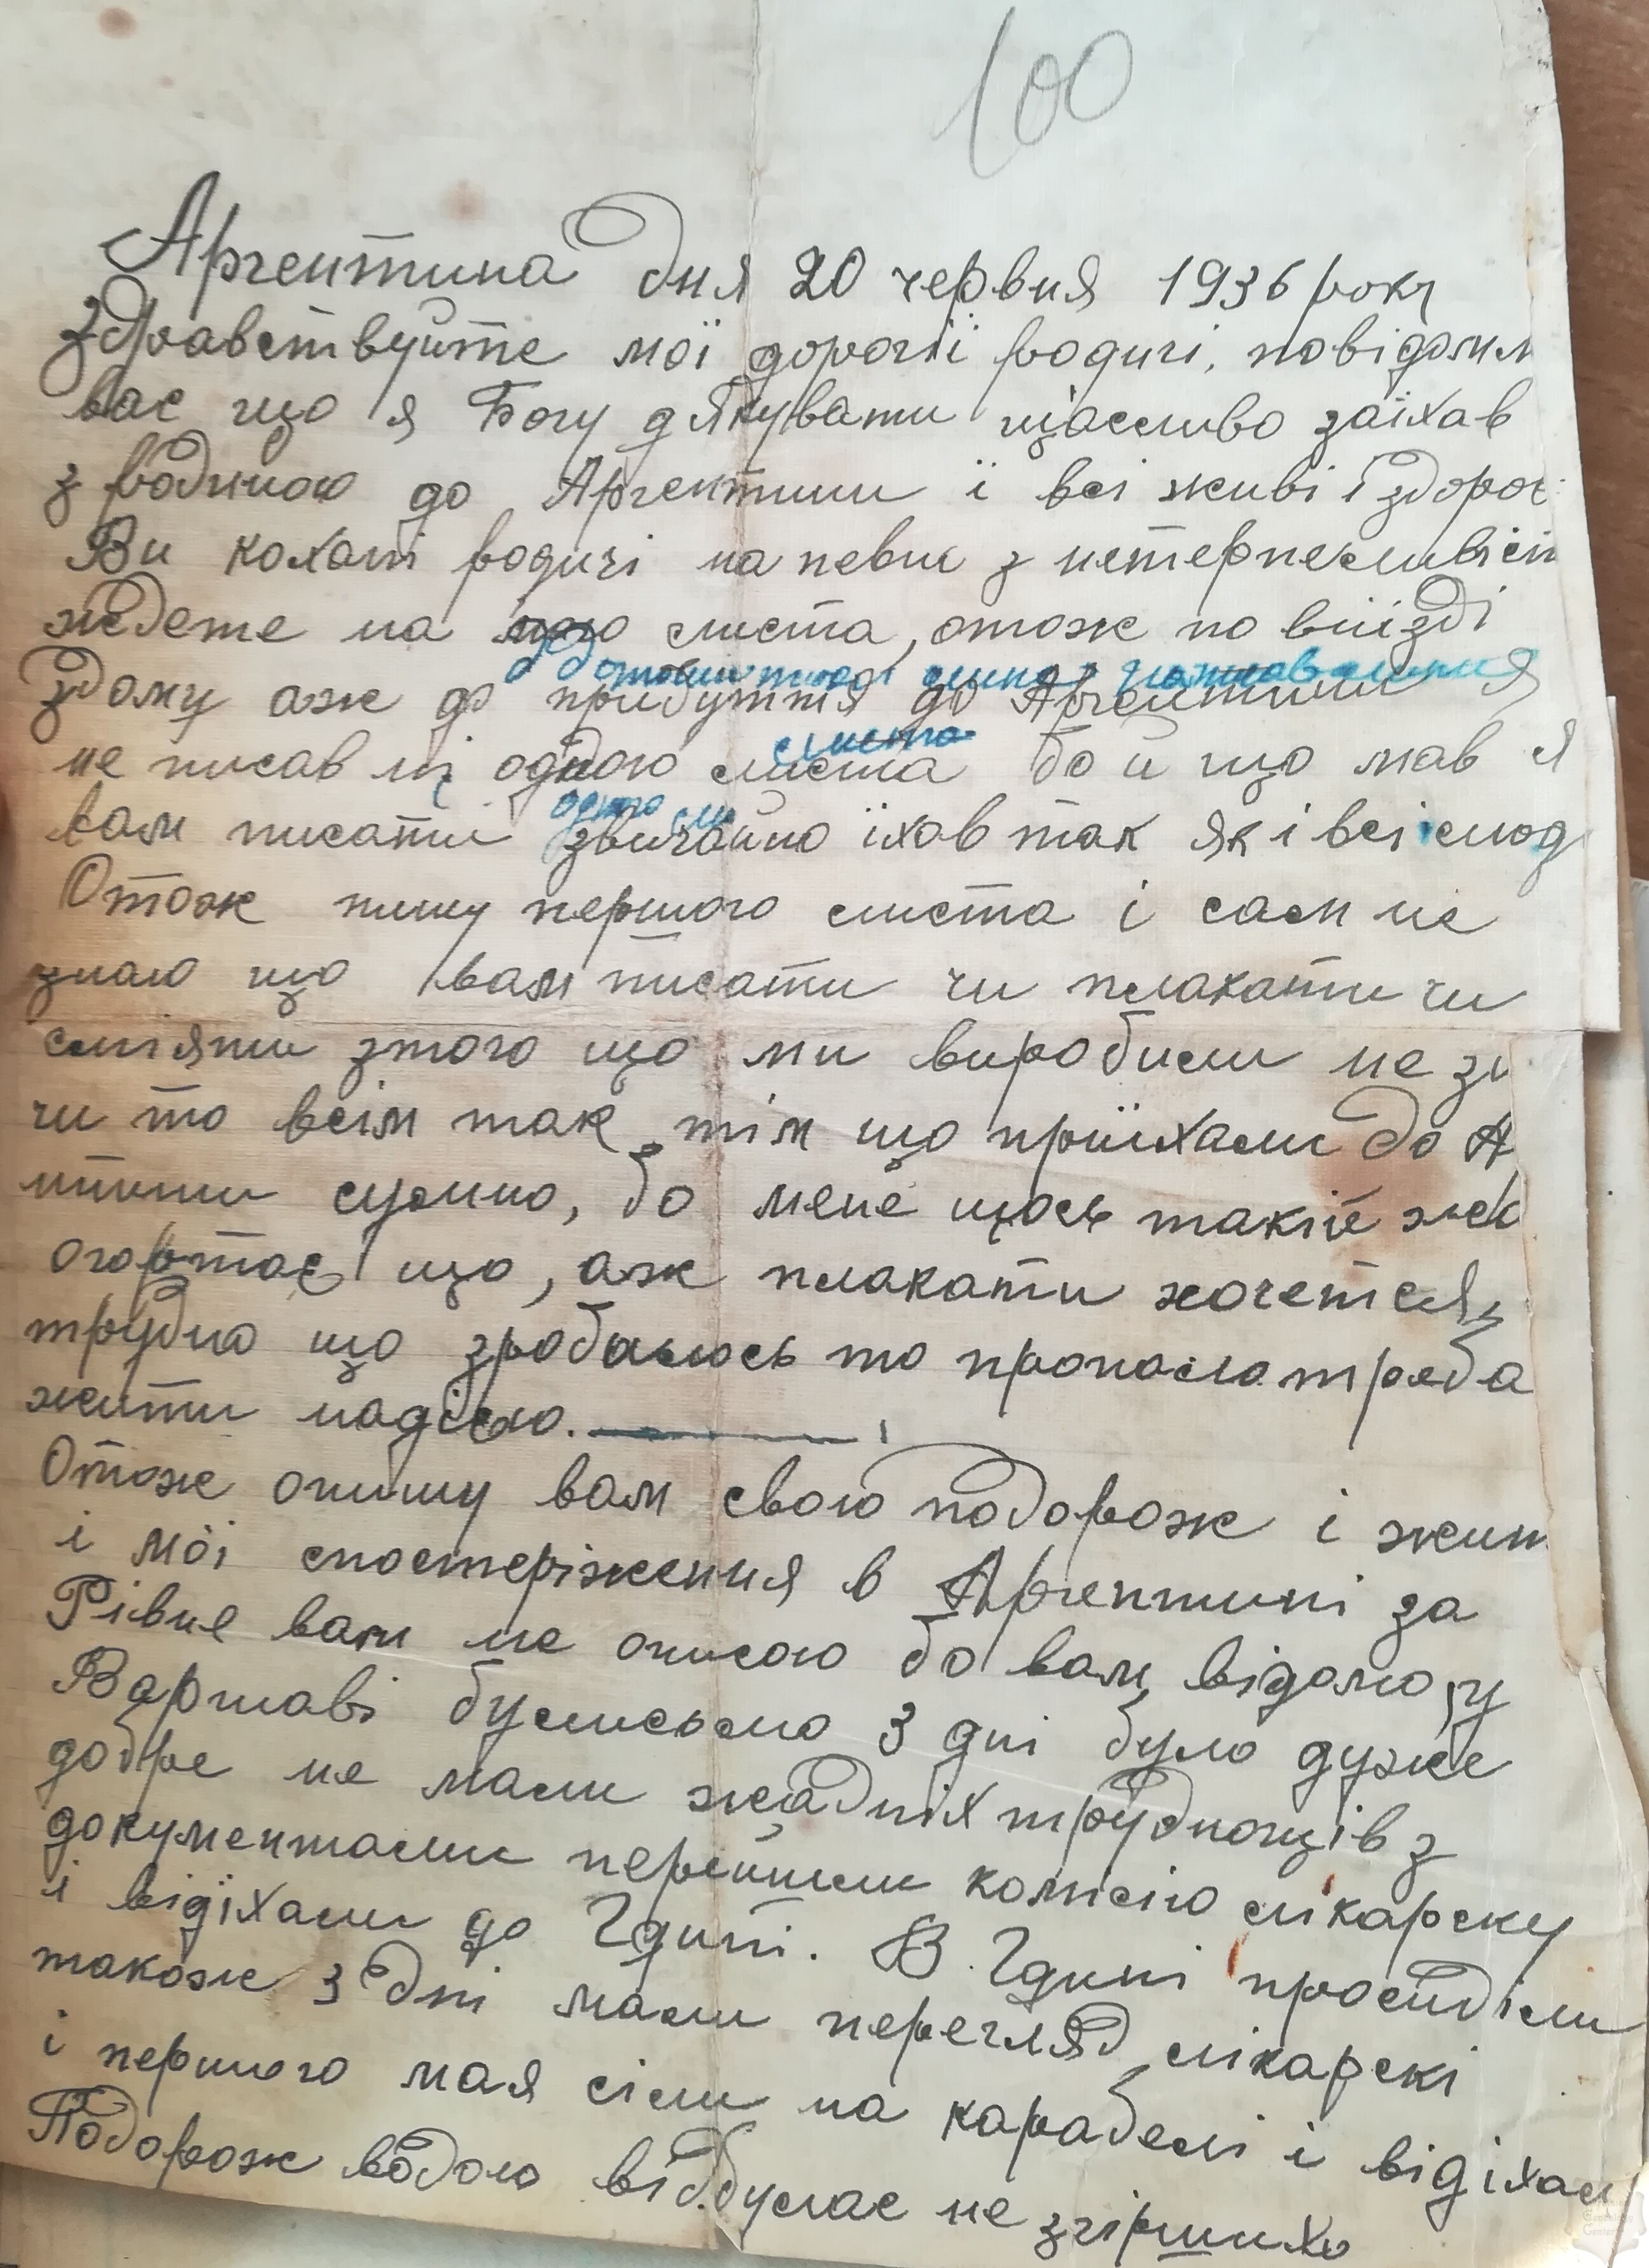 100
Аргентина дня 20 червня 1936 року
Здравствуйте мої дорогії родичі, повідомл
вас що я Богу дякувати щасливо заїхав
з родиною до Аргентини ї всі живі ї здоров
Ви кохані родичі на певне з нетерпеливість
ждете на мого листа, отож по виїзді
Здому аж до прибуття до Аргентини я
не писав ні одного листа бо й що мав я
листа
вам писати звичайно їхав так як і всі люд
одного ли
Отож пишу першого листа і сам не
знаю що вам писати чи плакати чи
сміяти зтого що ми виробили не зн
чи то всім так тім що приїхали до А
нтини сумно, бо мене щось такій жал
огортає що, аж плакати хочется,
трудно що зробилось то пропало треба
жити надією.
Отож опишу вам свою подорож і жит
і мої спостеріження в Аргентині за
Рівне вам не описою бо вам відомо, у
Варшаві булисьмо 3 дні було дуже
добре не мали жадніх труднощів з
документами перейшли комісію лікарску
і відїхали до Гдині. В Гдині просиділи
також 3 дні мали перегляд лікарскі
і першого мая сіли на караблі і відїхали
Подорож водою відбулас не згірших